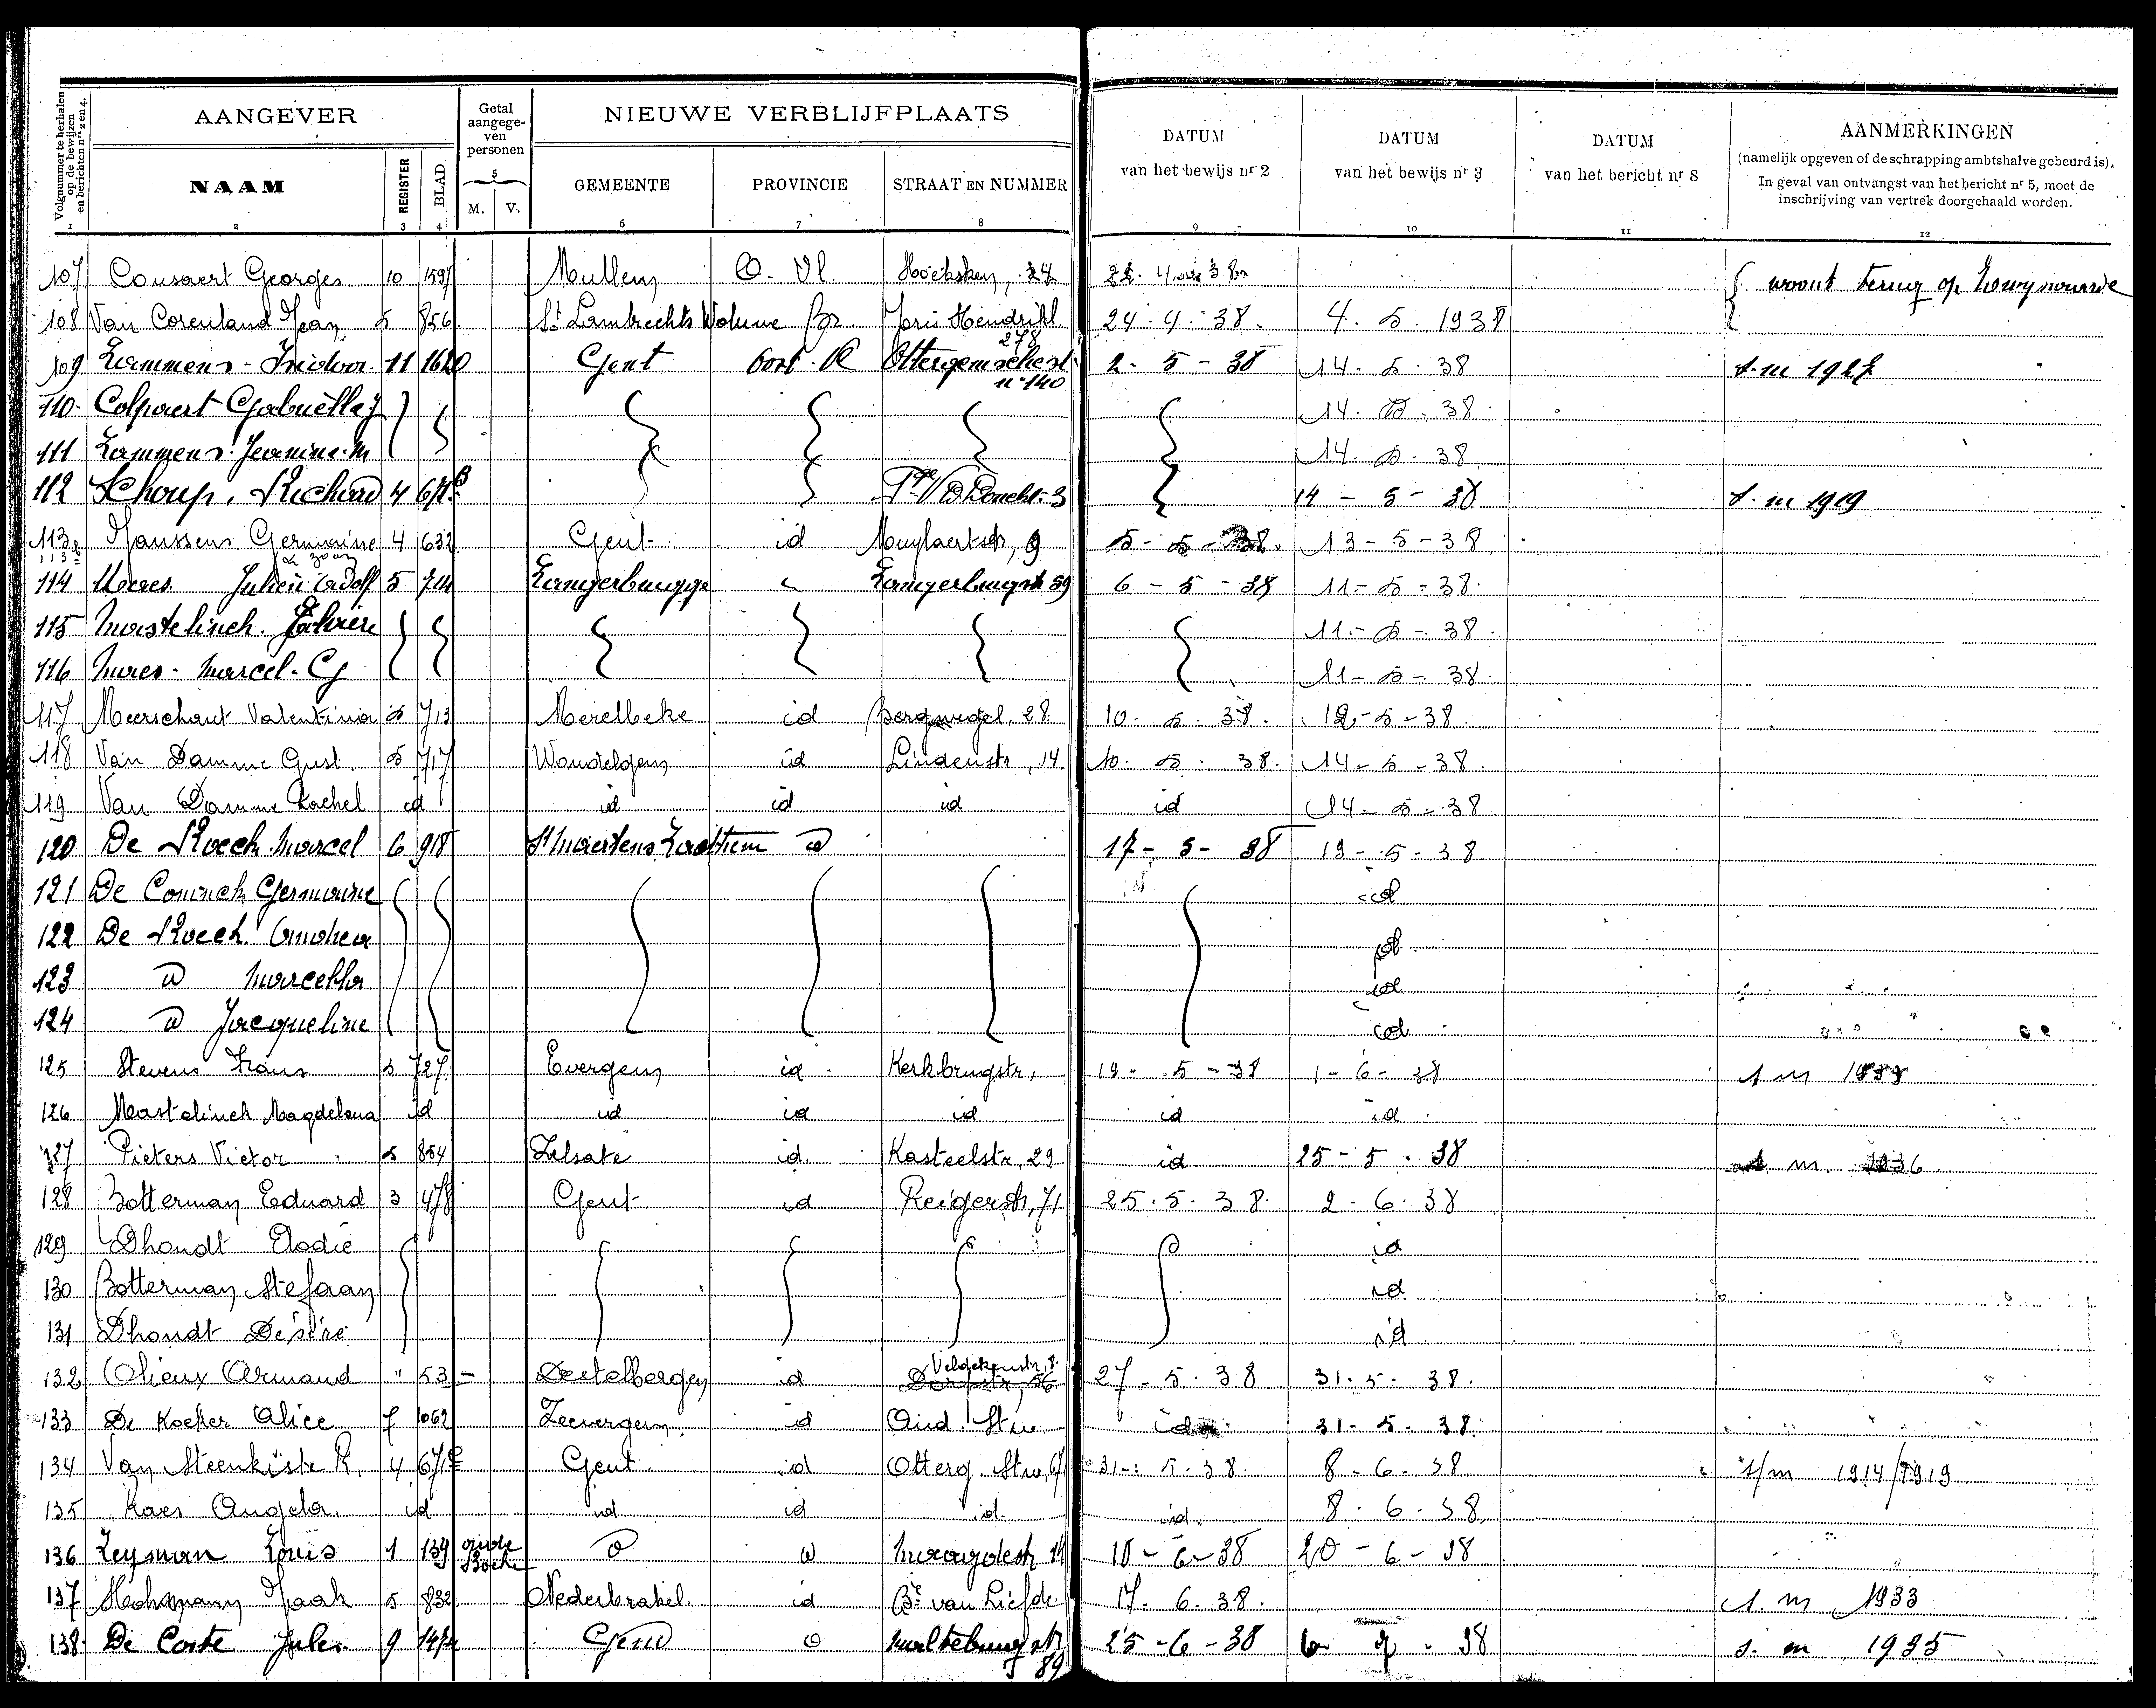 Volgnummer te herhalen op de bewijzen en berichten nrs 2 en 4.
AANGEVER
Getal aangegeven personen
NIEUWE VERBLIJFPLAATS
DATUM van het bewijs nr 2
DATUM van het bewijs nr 3
DATUM van het bericht nr 8
AANMERKINGEN
(namelijk opgeven of de schrapping ambtshalve gebeurd is).
In geval van ontvangst van het bericht nr 5, moet de inschrijving van vertrek doorgehaald worden.
NAAM REGISTER BLAD 5 M. V. GEMEENTE PROVINCIE STRAAT EN NUMMER
1 2 3 4 6 7 8 9 10 11 12
107 Cousaert Georges 10 1591 Mullem O. Vl. 24 woont terug op
108 Van Corenland Jean 5 856 St Lambrechts Woluwe Br. Joris Hendrikl. 278 24.4.38. 4.5.1938
109 Lammens - Isidoor 11 1620 Gent Oost-Vl Ottergemschest n° 140 2-5-38 14.5.38 s.m 1927
110. Colpaert Gabriëlle J 14.5.38.
111 Lammens Jeanine M 14.5.38.
112 Schoup, Richard 4 14-5-38 s.m 1919
113 Janssens Germaine & zoon 4 632 Gent id Muylaertstr, 9 5-5-38. 13-5-38
114 Julien Adolf 5 714 Langerbrugge Langerbrugstr 59 6-5-38 11-5-38.
115 Mastelinck 11-5-38.
116 Marcel. G 11-5-38.
117 Meerschaut Valentina 5 713 Merelbeke id Bergwegel, 28 10.5.38. 12-5-38.
118 Van Damme Gust. 5 717 Wondelgem id Lindenstr, 14 10.5.38. 14-5-38.
119 Van Damme Rachel id id id id id 14-5-38
120 De Roeck Marcel 6 918 St Maertens Laethem id 17-5-38 19-5-38
121 De Coninck Germaine id
122 De Roeck id
123 id Marcella id
124 id Jacqueline id
125 Stevens Frans 5 727 Evergem id Kerkbrugstr, 19-5-38 1-6-38 s m
126 Mastelinck Magdelena id id id id id id
127 Pieters Victor 5 854 Zelzate id. Kasteelstr, 29 id 25-5.38 m. 1936
128 Botterman Eduard 3 478 Gent id Reigerstr, 71 25.5.38. 2-6.38
129 Dhondt Elodie id
130 Botterman Stefaan id
131 Dhondt Desiré id
132 Olieux Armand " 53 Destelbergen id Dorpstr, 56 27-5.38 31.5.38.
133 De Koeker Alice 7 1062 Zevergem. id id 31-5.38.
134 Van Steenkiste R. 4 Gent. id Otterg. Stw, 67 31-5.38. 8-6.38 s/m 1914/1919
135 Angela. id id id id. id. 8.6.38.
136 Leyman Louis 1 139 id id 18-6-38 20-6-38
137 Jaak 5 832 Nederbrakel. id 17.6.38. s.m 1933
138. De Coste Jules 9 Gent id Maltebrugstr 89 25-6-38 6-7-38 s.m 1935